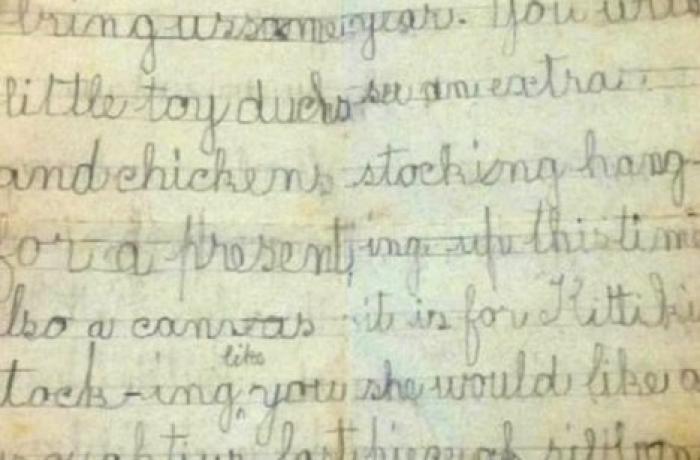 bring us some
little toy ducks
and chickens
for a present
lso a canvas
tock-ing like you
last
year. You
see an extra
stocking hang
ing up this time
it is for Kitti
she would like a
piece of ribbon